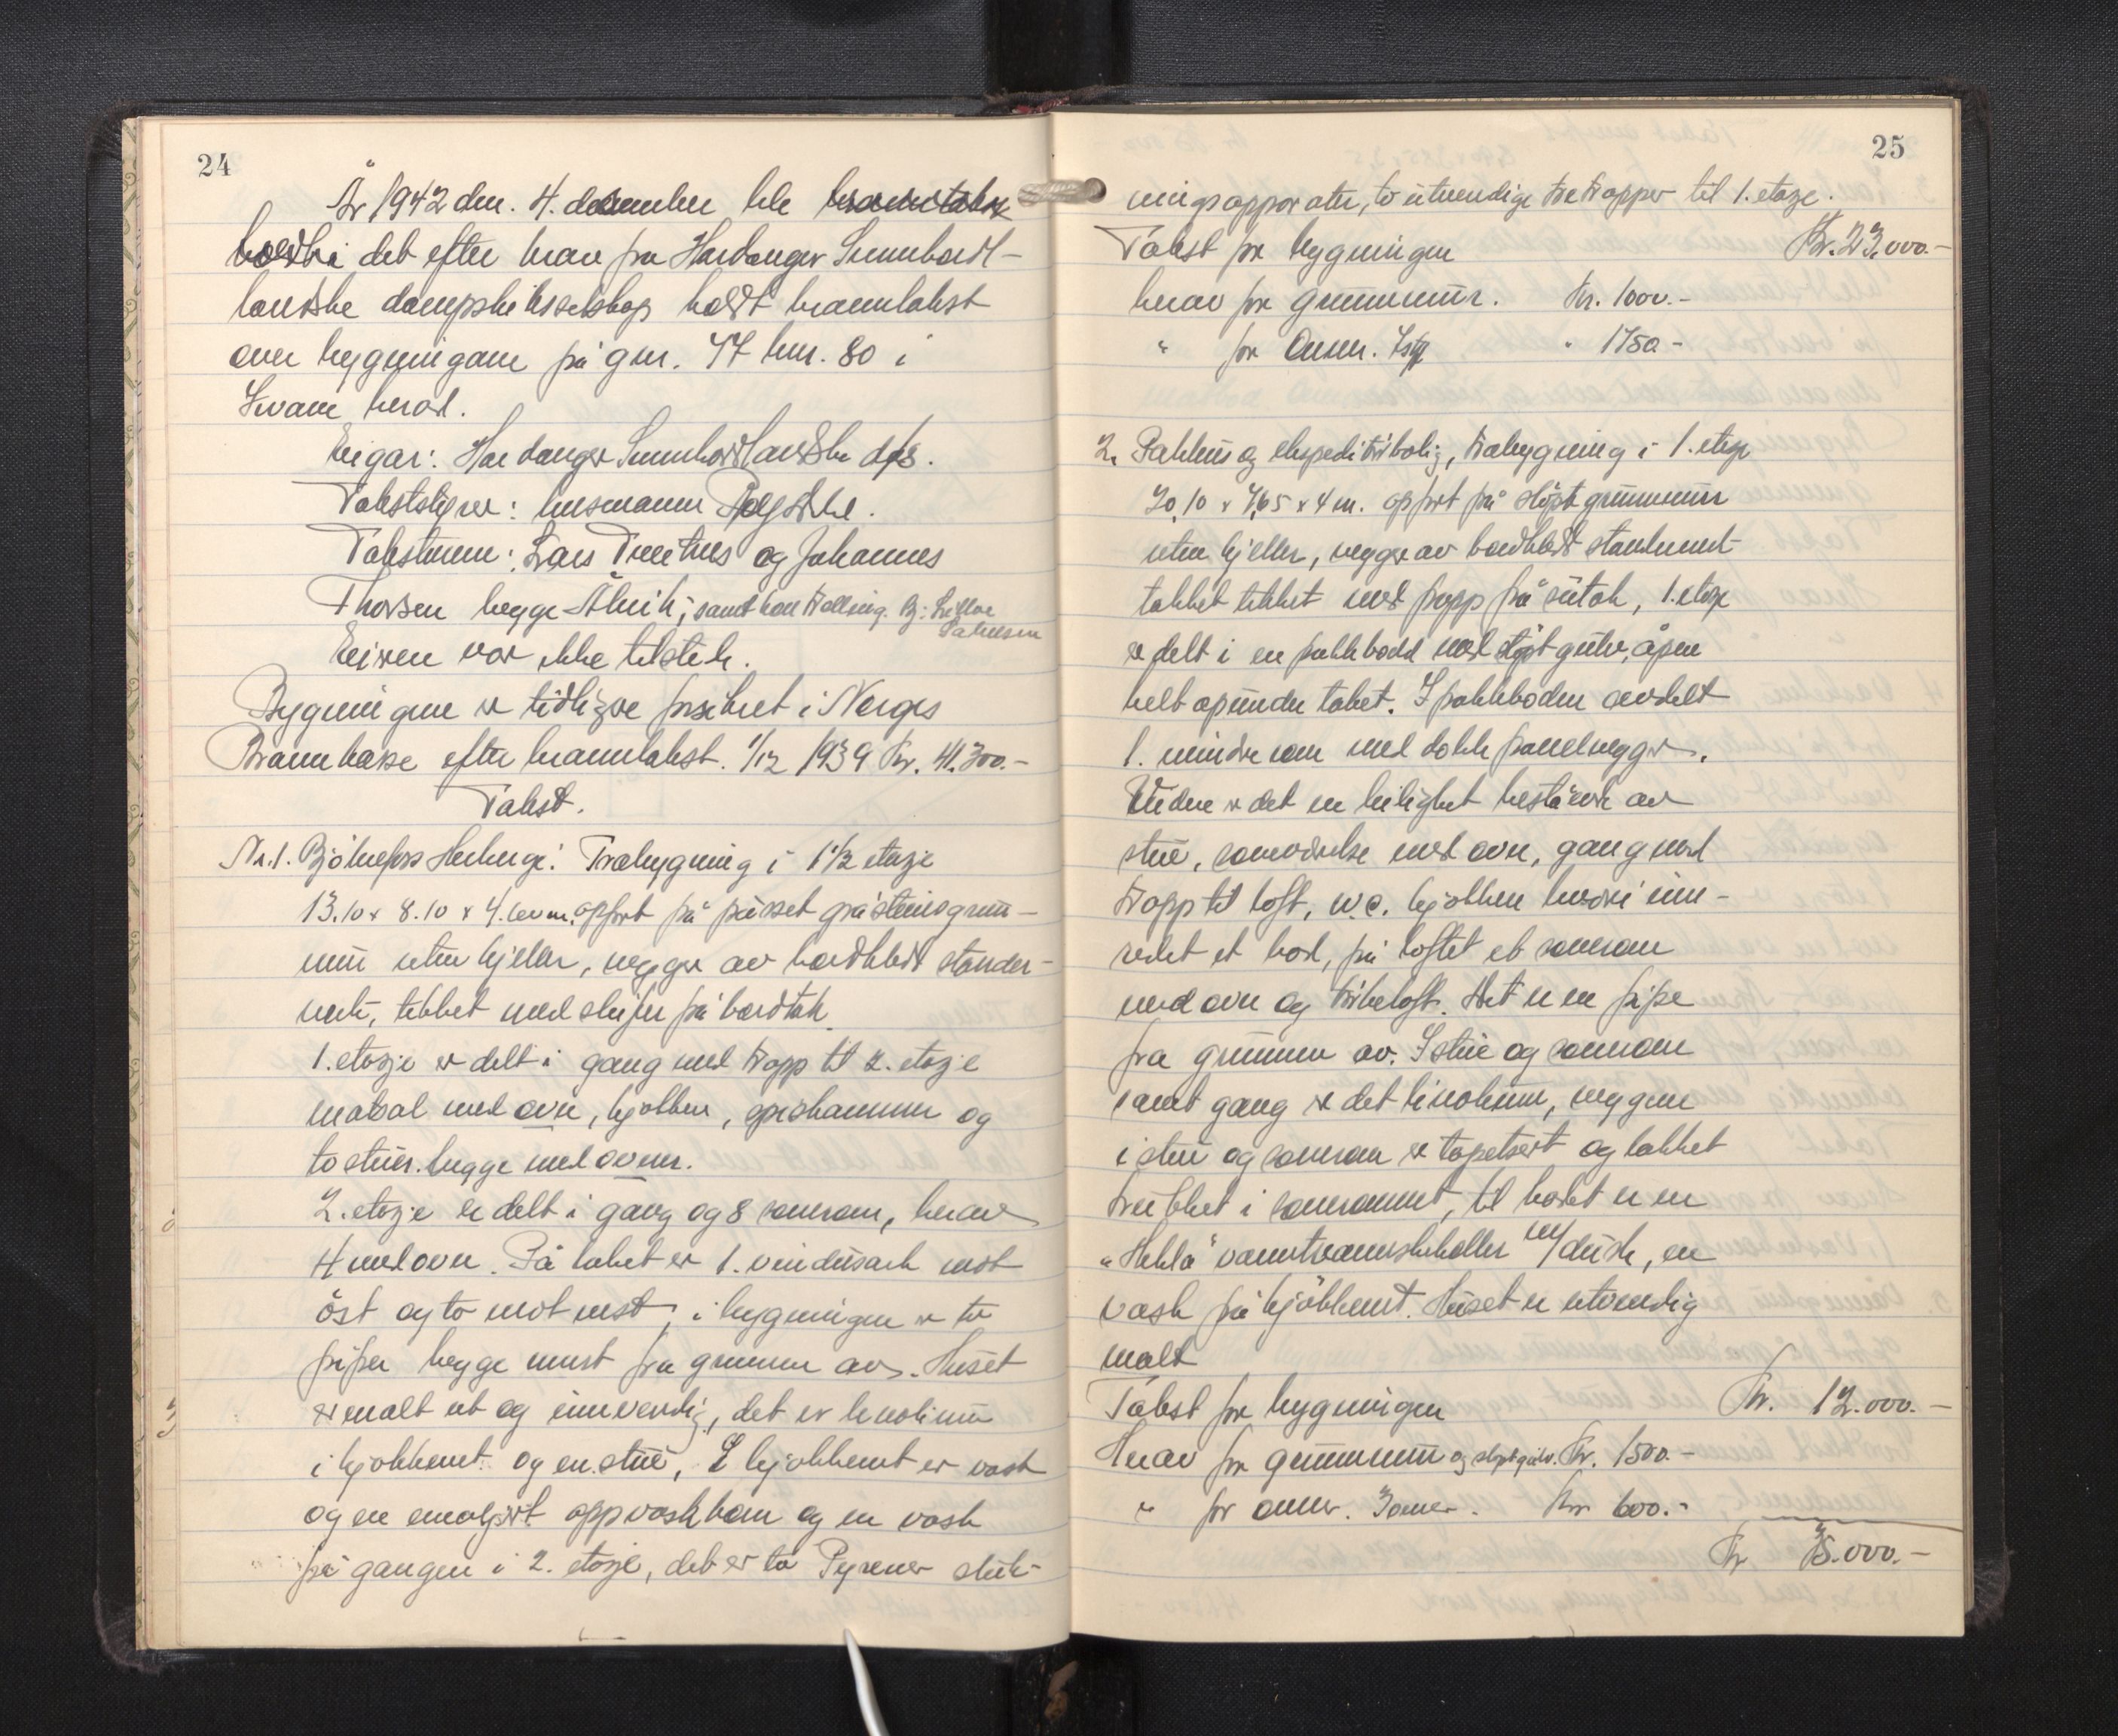 24
År 1942 den. 4. desember ble branntakst
det efter krav fra Hardanger Sunnhord-
landske dampskibsselskap holdt branntakst
over bygningane på gnr. 47 bnr. 80 i
Kvam herad.
Eigar: Hardanger Sunnhordlandske d/s.
Takststyrer: lensmann
Takstmenn: Lars Tveitnes og Johannes
Thorsen begge Ålvik, samt kontrolling. Bj.
Eieren var ikke tilstede.
Bygningene er tidligere forsikret i Norges
Brannkasse efter branntakst. 1/12 1939 Kr. 41.300.-
Takst.
Nr. 1. Bjølvefoss Herberge: Trebygning i 1 1/2 etasje
13.10 x 8.10 x 4.60 m. opført på pusset gråsteinsgrun-
mur uten kjeller, vegger av bordkledt stander-
verk, tekket med skifer på bordtak.
1. etasje er delt i gang med trapp til 2. etasje
matsal med ovn, kjøkken, spiskammer og
to stuer. begge med ovner.
2. etasje er delt i gang og 8 soverom, herav
4 med ovn. På taket er 1. vindusark mot
öst og to mot vest, i bygningen er to
piper begge murt fra grunnen av. Huset
er malt ut og innvendig, det er linolium
i kjøkkenet og en stue, I kjøkkenet er vask
og en emaljert oppvaskkum og en vask
på gangen i 2. etasje, det er to Pyrener sluk-
25
ningsapparater, to utvendige tretrapper til 1. etasje.
Takst for bygningen Kr. 23.000.-
herav for grunnmur. Kr. 1000.-
" for Anm. " 1750 -
2. Pakkhus og ekspeditörbolig, trebygning i 1. etasje
20,10 x 7,65 x 4 m. opført på støpt grunnmur
uten kjeller, vegger av bordkledt standverk
takket tekket med papp på sutak, 1. etasje
er delt i en pakkbod med støpt gulv, åpen
helt opunder taket. I pakkboden avdelt
1. mindre rom med dobble panelvegger.
Videre er det en leilighet bestående av
stue, soveværelse med ovn, gang med
trapp til loft, w.c. kjøkken hvori inn-
redet et bad, på loftet et soverom
med ovn og tørkeloft. Det er en pipe
fra grunnen av. I stue og soverom
samt gang er det linoleum, veggene
i stue og soverom er tapetsert og lakket
trehvitt i soverommet, til badet er en
"Hekla" varmtvannsbeholder m/dusk, en
vask på kjökkenet. Huset er utvendig
malt
Takst for bygningen Kr. 12.000.-
Herav for grunnmur og støpt gulv. Kr. 1500.-
" for anm. Kr. 600.-
Kr 35.000.-